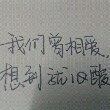 我们曾相爱,
想到就心酸